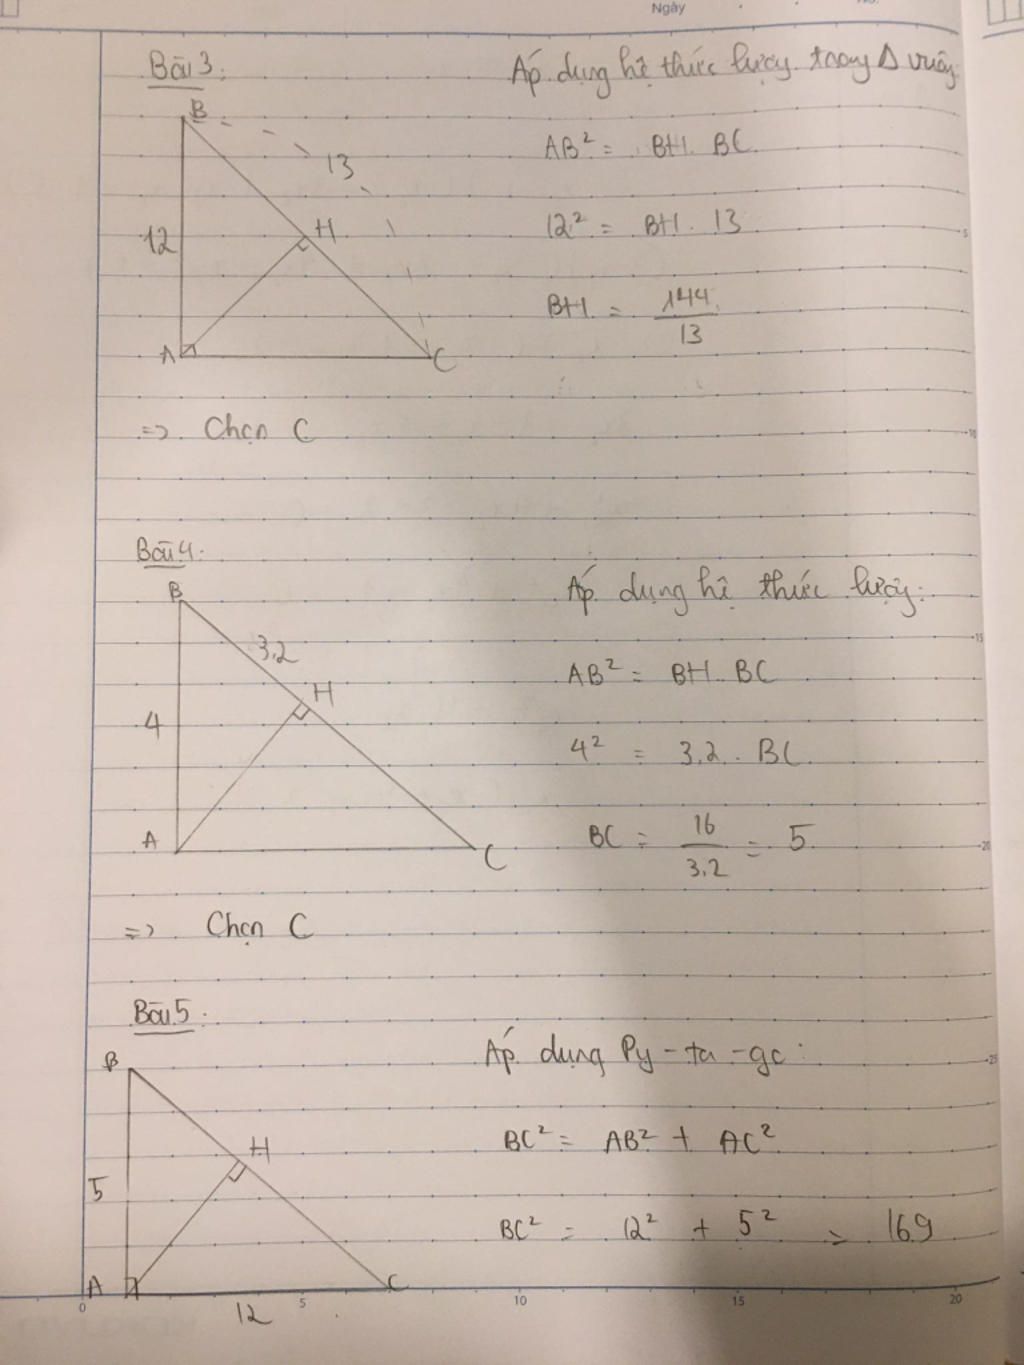 Ngày
Bài 3:
Áp dụng hệ thức lượng trong Δ vuông
B
13
12
H
A
C
AB² = BH. BC
12² = BH. 13
BH = 144/13
=> Chọn C
Bài 4:
B
3,2
H
4
A
C
Áp dụng hệ thức lượng:
AB² = BH. BC
4² = 3,2. BC
BC = 16/3,2 = 5
=> Chọn C
Bài 5:
B
H
5
A
C
12
Áp dụng Py-ta-go:
BC² = AB² + AC²
BC² = 12² + 5² = 169
5
10
15
20
25
0 5 10 15 20